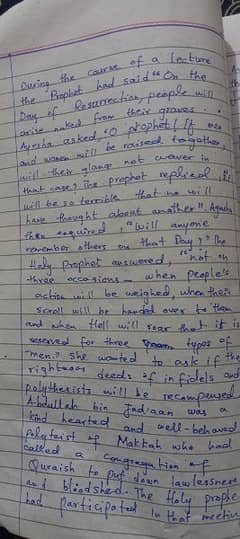 During the course of a lecture
the Prophet had said "On the
Day of Resurrection, people will
arise naked from their graves.
Ayesha asked, "O prophet! If men
and women will be raised together,
will their glance not waver in
that case? The prophet replied, It
will be so terrible that no will
have thought about another". Ayesha
then enquired, "will anyone
remember others on that Day? The
Holy Prophet answered, "not on
three occasions — when people's
action will be weighed, when their
scroll will be handed over to them
and when Hell will roar that it is
reserved for three types of
men." She wanted to ask if the
righteous deeds of infidels and
polytheists will be recompensed
Abdullah bin Jad'aan was a
kind hearted and well-behaved
polyteist of Makkah who had
called a congregation of
Quraish to put down lawlessness
and bloodshed. The Holy prophe
had participated in that meetin